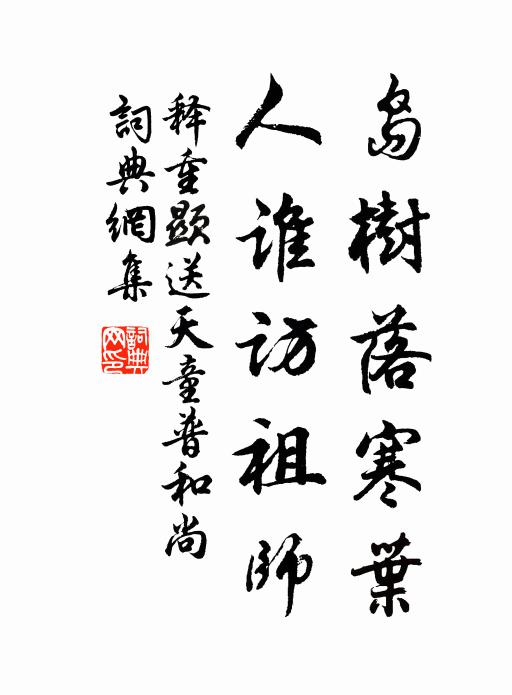 島樹落寒葉
人誰訪祖師
释重顯送天童普和尚
詞典網集
詞典網印